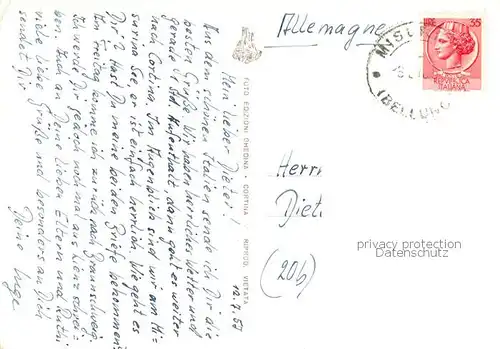 Mein lieber Dieter!
Aus dem schönen Italien sende ich Dir die
besten Grüße. Wir haben herrliches Wetter und
gerade 1 Std. Aufenthalt, dann geht es weiter
nach Cortina. Im Augenblick sind wir am Mi-
surina See, er ist einfach herrlich. Wie geht es
Dir? Hast Du meine beiden Briefe bekommen?
Am Freitag komme ich zurück nach Braunschweig.
Ich werde Dir gleich noch mal aus Lienz schrei-
ben. Auch an Deine lieben Eltern und
viele liebe Grüße und besonders an Dich
sendet Dir
Deine Inge
12.7.57
FOTO EDIZIONI GHEDINA - CORTINA - RIPROD. VIETATA
Allemagne
MISU
(BELLUNO
LIRE 35
REPUBBLICA
ITALIANA
Herrn
Diet
(20b)
privacy protection
Datenschutz